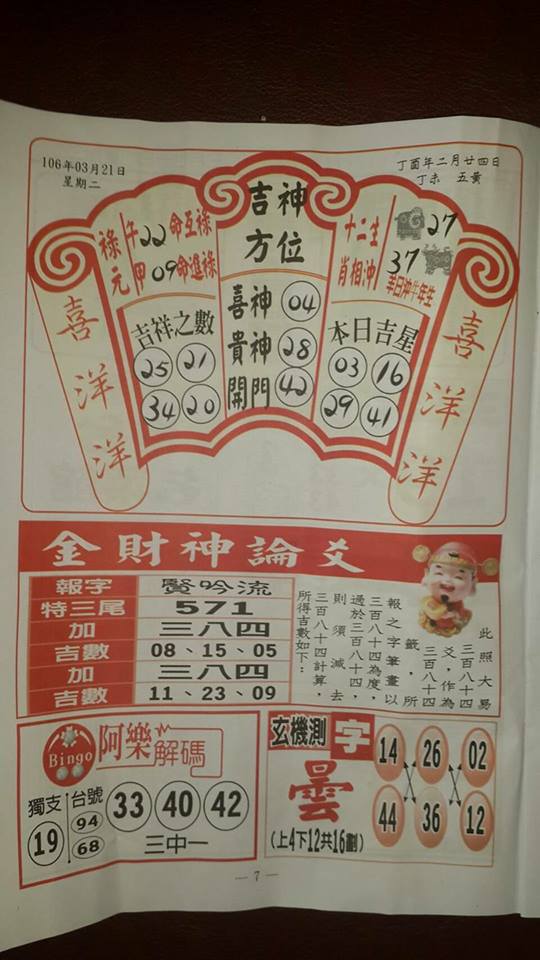 106年03月21日
星期二
丁酉年二月廿四日
丁未 五黃
喜洋洋
祿元
午 22 命互祿
甲 09 命進祿
吉祥之數
25 21
34 20
吉神方位
喜神 04
貴神 28
開門 42
十二生肖相沖
27
37
羊日沖牛年生
本日吉星
03 16
29 41
喜洋洋
金財神論爻
報字 賢吟流
特三尾 571
加 三八四
吉數 08、15、05
加 三八四
吉數 11、23、09
此照大易
三百八十四
爻,作為
三百八十四
籤,所
報之字筆畫以
三百八十四為度,
過於三百八十四,
則須減去
三百八十四計算,
所得吉數如下:
Bingo
阿樂解碼
獨支 19
台號 94 68
33 40 42
三中一
玄機測字
曇
(上4下12共16劃)
14 26 02
44 36 12
— 7 —